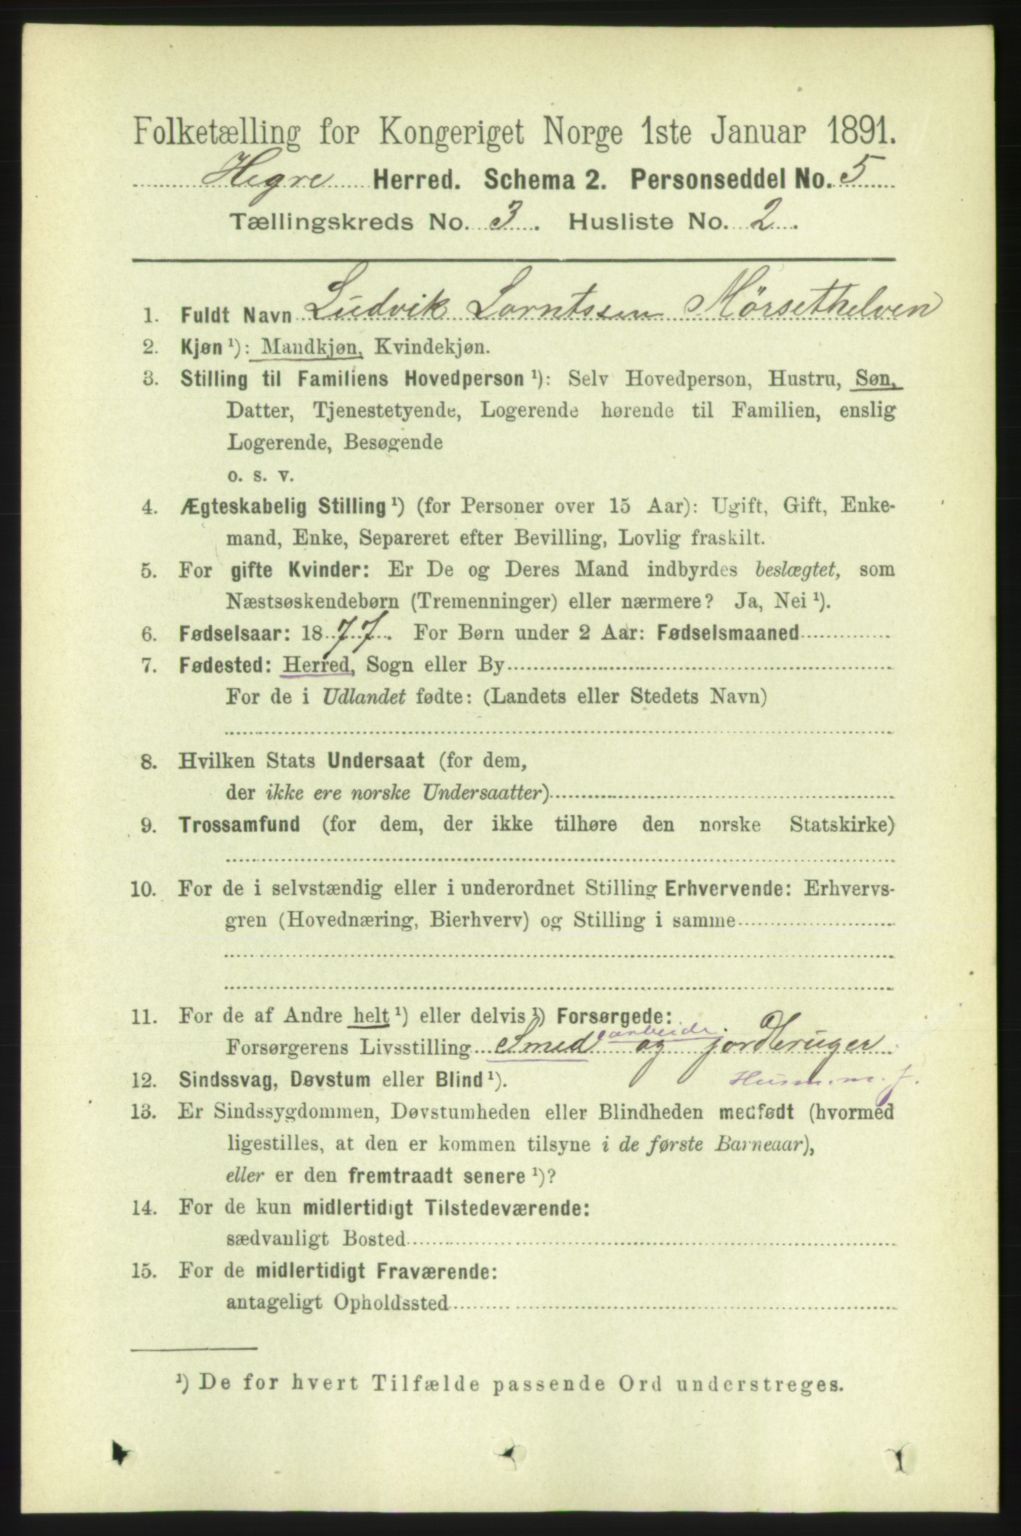 Folketælling for Kongeriget Norge 1ste Januar 1891.
Hegre Herred. Schema 2. Personseddel No. 5
Tællingskreds No. 3. Husliste No. 2.
1. Fuldt Navn Ludvik Lorntssen Mørsethelven
2. Kjøn ¹): Mandkjøn, Kvindekjøn.
3. Stilling til Familiens Hovedperson ¹): Selv Hovedperson, Hustru, Søn,
Datter, Tjenestetyende, Logerende hørende til Familien, enslig
Logerende, Besøgende
o. s. v.
4. Ægteskabelig Stilling ¹) (for Personer over 15 Aar): Ugift, Gift, Enke-
mand, Enke, Separeret efter Bevilling, Lovlig fraskilt.
5. For gifte Kvinder: Er De og Deres Mand indbyrdes beslægtet, som
Næstsøskendebørn (Tremenninger) eller nærmere? Ja, Nei ¹).
6. Fødselsaar: 1877. For Børn under 2 Aar: Fødselsmaaned
7. Fødested: Herred, Sogn eller By
For de i Udlandet fødte: (Landets eller Stedets Navn)
8. Hvilken Stats Undersaat (for dem,
der ikke ere norske Undersaatter)
9. Trossamfund (for dem, der ikke tilhøre den norske Statskirke)
10. For de i selvstændig eller i underordnet Stilling Erhvervende: Erhvervs-
gren (Hovednæring, Bierhverv) og Stilling i samme
11. For de af Andre helt ¹) eller delvis ¹) Forsørgede:
arbeide.
Forsørgerens Livsstilling Smed og jordbruger
Husm. m. j.
12. Sindssvag, Døvstum eller Blind ¹).
13. Er Sindssygdommen, Døvstumheden eller Blindheden medfødt (hvormed
ligestilles, at den er kommen tilsyne i de første Barneaar),
eller er den fremtraadt senere ¹)?
14. For de kun midlertidigt Tilstedeværende:
sædvanligt Bosted
15. For de midlertidigt Fraværende:
antageligt Opholdssted
¹) De for hvert Tilfælde passende Ord understreges.